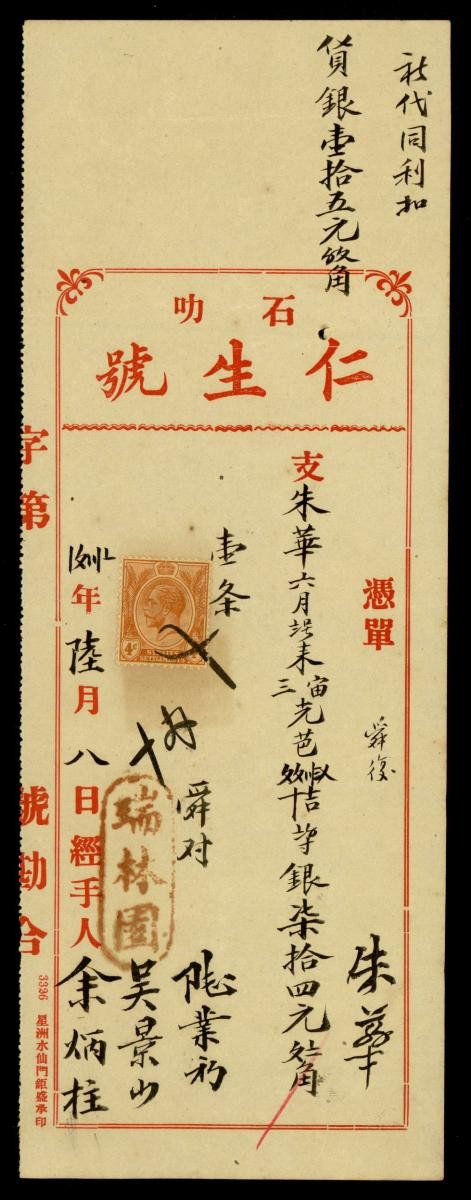 代同利扣
貨銀壹拾五元 角
石叻
仁生號
憑單
舜復
朱華
支朱華六月 来
三 芭
銀柒拾四元 角
壹条
舜对
業初
吴景山
余炳柱
年陸月八日經手人
瑞林園
4c
字第 號勘合
3396 星洲水仙門鉅盛承印